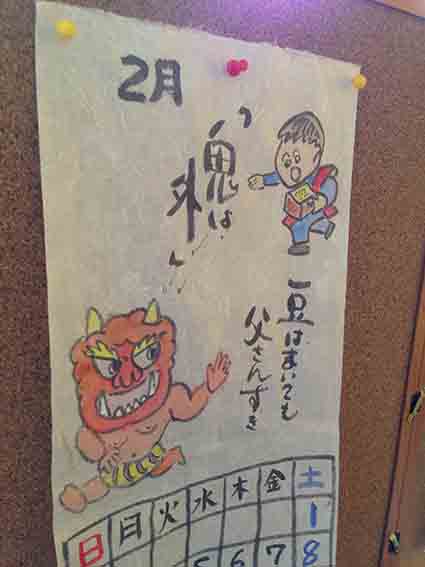 2月
「鬼は
外…」
豆はまいても
父さんすき
日 月 火 水 木 金 土
1
5 6 7 8